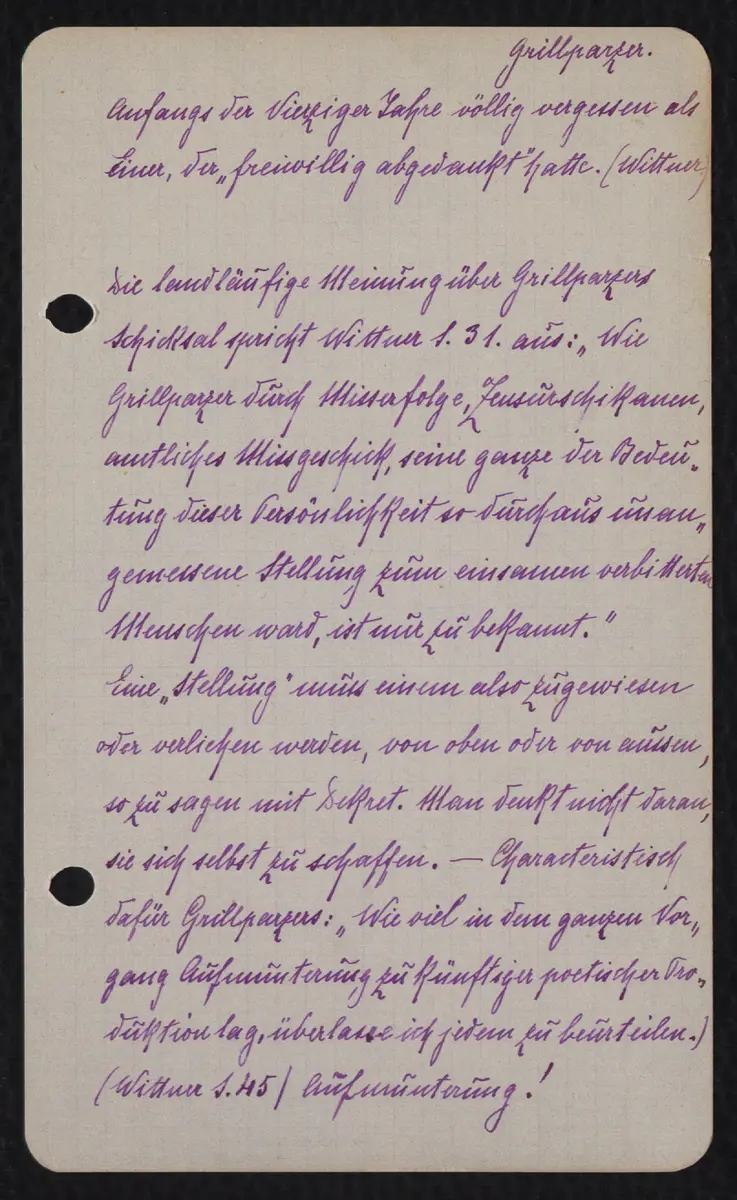 Grillparzer.
Anfangs der Vierziger Jahre völlig vergessen als
Einer, der „freiwillig abgedankt" hatte. (Wittner)
Die landläufige Meinung über Grillparzers
Schicksal spricht Wittner S. 31. aus: „Wie
Grillparzer durch Misserfolge, Zensurschikanen,
amtliches Missgeschick, seine ganze der Bedeu„
tung dieser Persönlichkeit so durchaus unan„
gemessene Stellung zum einsamen verbitterten
Menschen ward, ist nur zu bekannt."
Eine „Stellung" muss einem also zugewiesen
oder verliehen werden, von oben oder von aussen,
so zu sagen mit Dekret. Man denkt nicht daran,
sie sich selbst zu schaffen. — Characteristisch
dafür Grillparzers: „Wie viel in dem ganzen Vor„
gang Aufmunterung zu künftiger poetischer Pro„
duktion lag, überlasse ich jedem zu beurteilen.)
(Wittner S. 45) Aufmunterung!